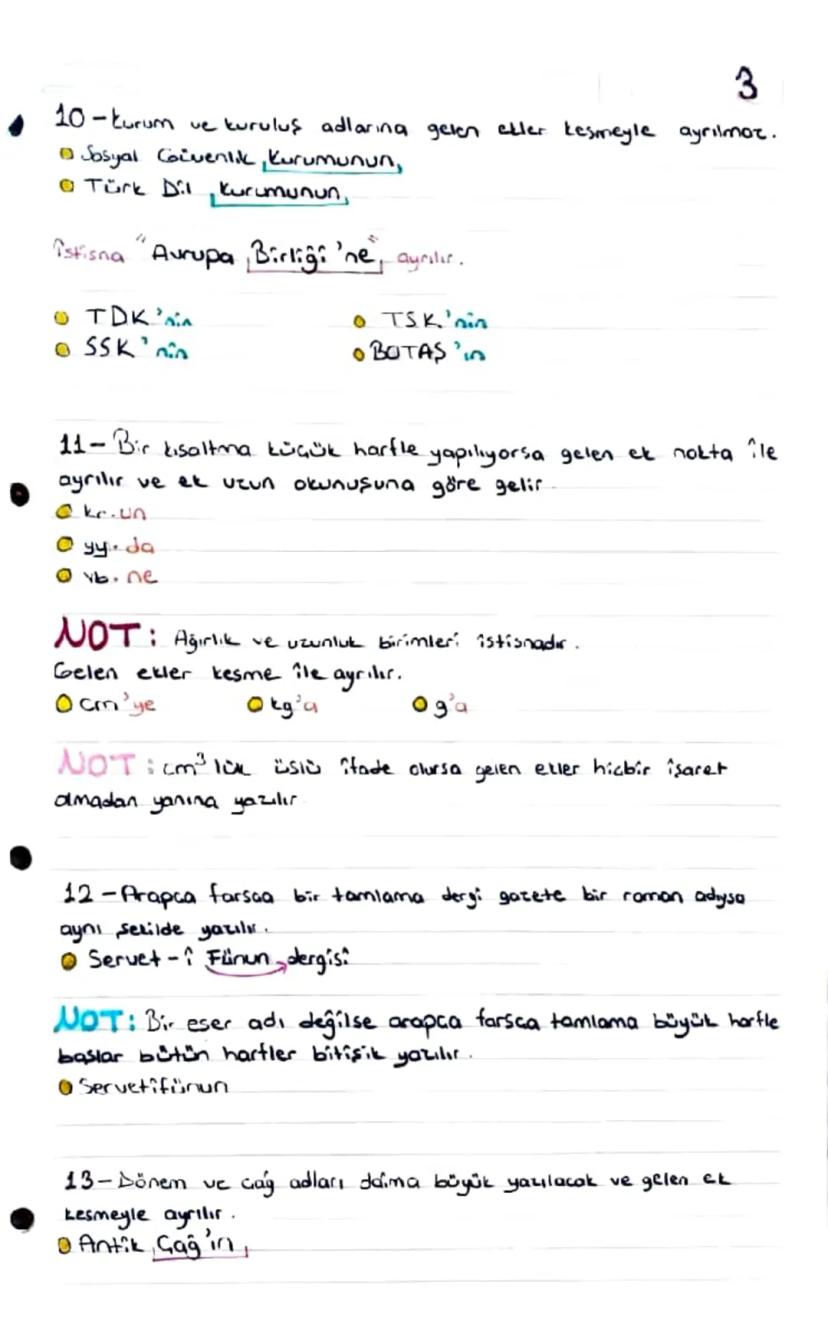 3
10-Kurum ve kuruluş adlarına gelen ekler kesmeyle ayrılmaz.
Sosyal Güvenlik Kurumunun
Türk Dil Kurumunun
İstisna "Avrupa Birliği'ne" ayrılır.
TDK'nin TSK'nin
SSK'nin BOTAŞ'ın
11- Bir kısaltma küçük harfle yapılıyorsa gelen ek nokta ile
ayrılır ve ek uzun okunuşuna göre gelir.
kr.un
yy.da
vb.ne
NOT: Ağırlık ve uzunluk birimleri istisnadır.
Gelen ekler kesme ile ayrılır.
cm'ye kg'a g'a
NOT: cm³ lük üslü ifade olursa gelen ekler hiçbir işaret
olmadan yanına yazılır.
12-Arapca farsca bir tamlama dergi gazete bir roman adıysa
aynı şekilde yazılır.
Servet-i Fünun dergisi
NOT: Bir eser adı değilse arapca farsca tamlama büyük harfle
başlar bütün harfler bitişik yazılır.
Servetifünun
13-Dönem ve çağ adları daima büyük yazılacak ve gelen ek
kesmeyle ayrılır.
Antik Çağ'ın